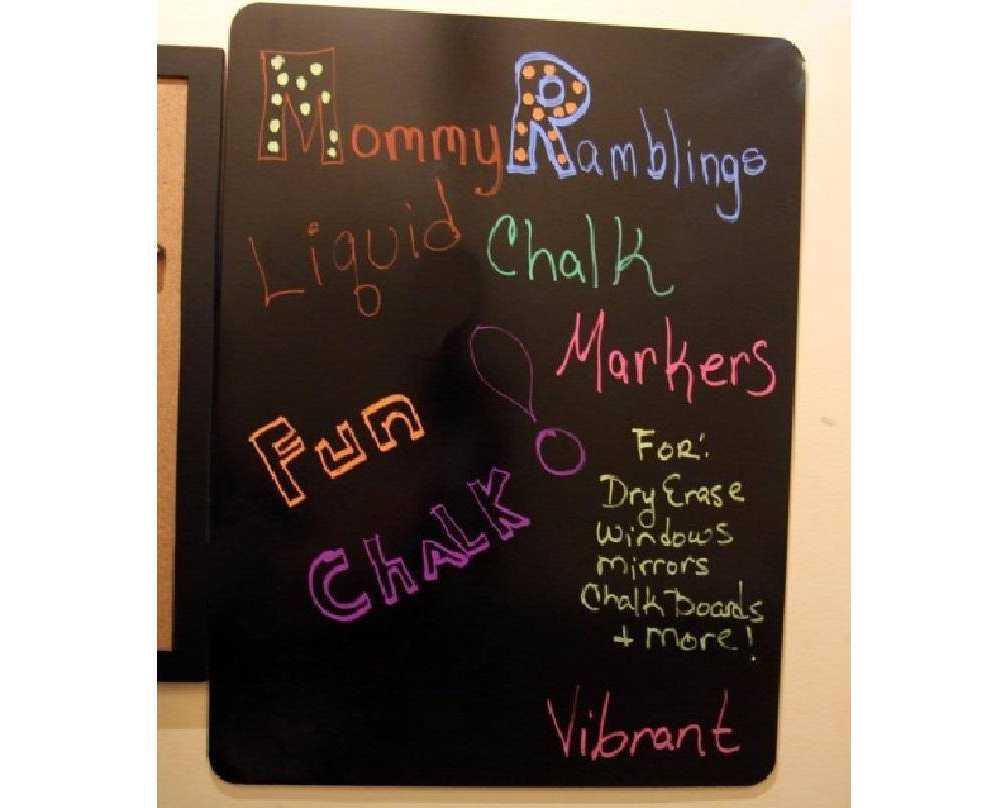 Mommy Ramblings
Liquid Chalk
Markers
Fun
Chalk!
For:
Dry Erase
Windows
mirrors
Chalk Boards
+ more!
Vibrant